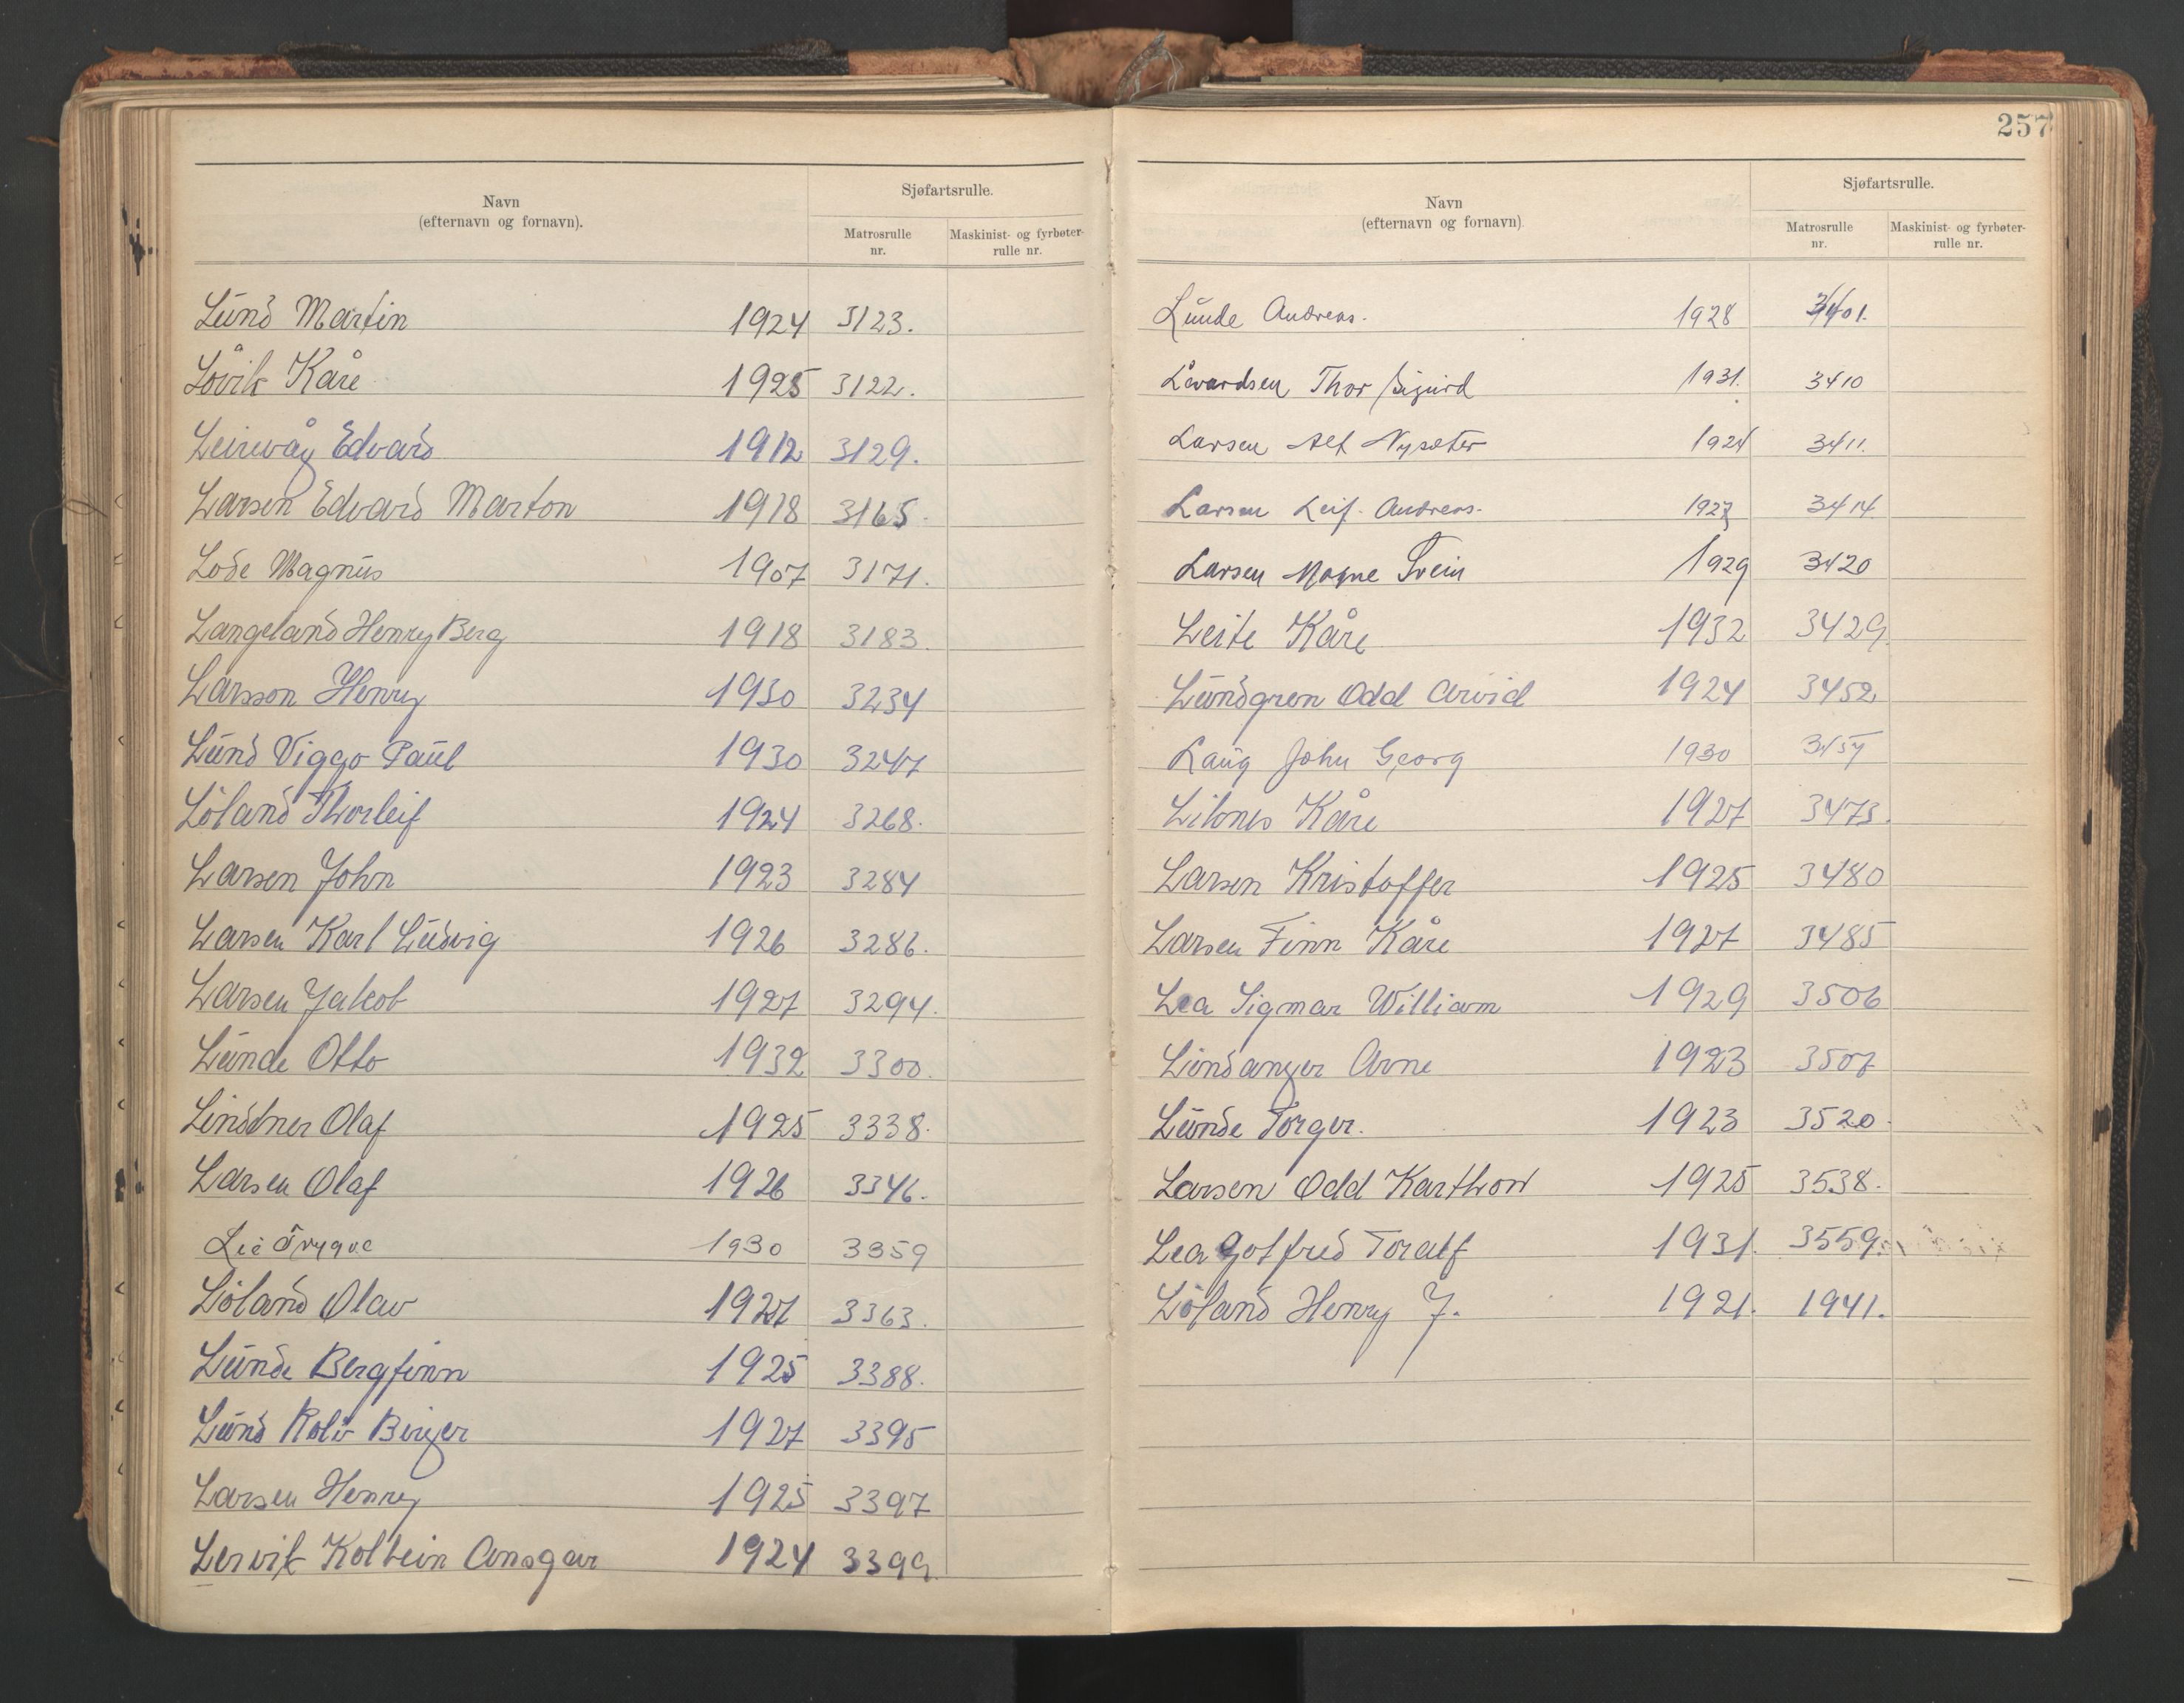 Navn
(efternavn og fornavn).
Sjøfartsrulle.
Matrosrulle
nr.
Maskinist- og fyrbøter-
rulle nr.
Lund Martin 1924 3123.
Låvik Kåre 1925 3122.
Leirvåg Edvard 1912 3129.
Larsen Edvard Marton 1918 3165.
Lode Magnus 1907 3171.
Langeland Henry Berg 1918 3183.
Larsson Henry 1930 3234
Lund Viggo Paul 1930 3247
Löland Thorleif 1924 3268.
Larsen John 1923 3284
Larsen Karl Ludvig 1926 3286.
Larsen Jakob 1927 3294.
Lunde Otto 1932 3300.
Lindtner Olaf 1925 3338.
Larsen Olaf 1926 3346.
Lie Trygve 1930 3359
Löland Olav 1927 3363.
Lunde Bergfinn 1925 3388.
Lund Rolv Birger 1927 3395
Larsen Henry 1925 3397
Lervik Kolbein Ansgar 1924 3399.
257
Navn
(efternavn og fornavn)
Sjøfartsrulle.
Matrosrulle
nr.
Maskinist- og fyrbøter-
rulle nr.
Lunde Andreas. 1928 3401.
Levardsen Thor Sigurd 1931. 3410
Larsen Alf Nysæter 1924 3411.
Larsen Leif. Andreas. 1927 3414
Larsen Magne Svein 1929 3420
Leite Kåre 1932 3429.
Lundgren Odd Arvid 1924 3452
Laug John Georg 1930 3457
Liknes Kåre 1927 3473.
Larsen Kristoffer 1925 3480
Larsen Finn Kåre 1927 3485
Lea Sigmar William 1929 3506
Lindanger Arne 1923 3507
Lunde Torger. 1923 3520.
Larsen Odd Karthon 1925 3538.
Lea Gotfred Toralf 1931. 3559.
Löland Henry J. 1921. 1941.